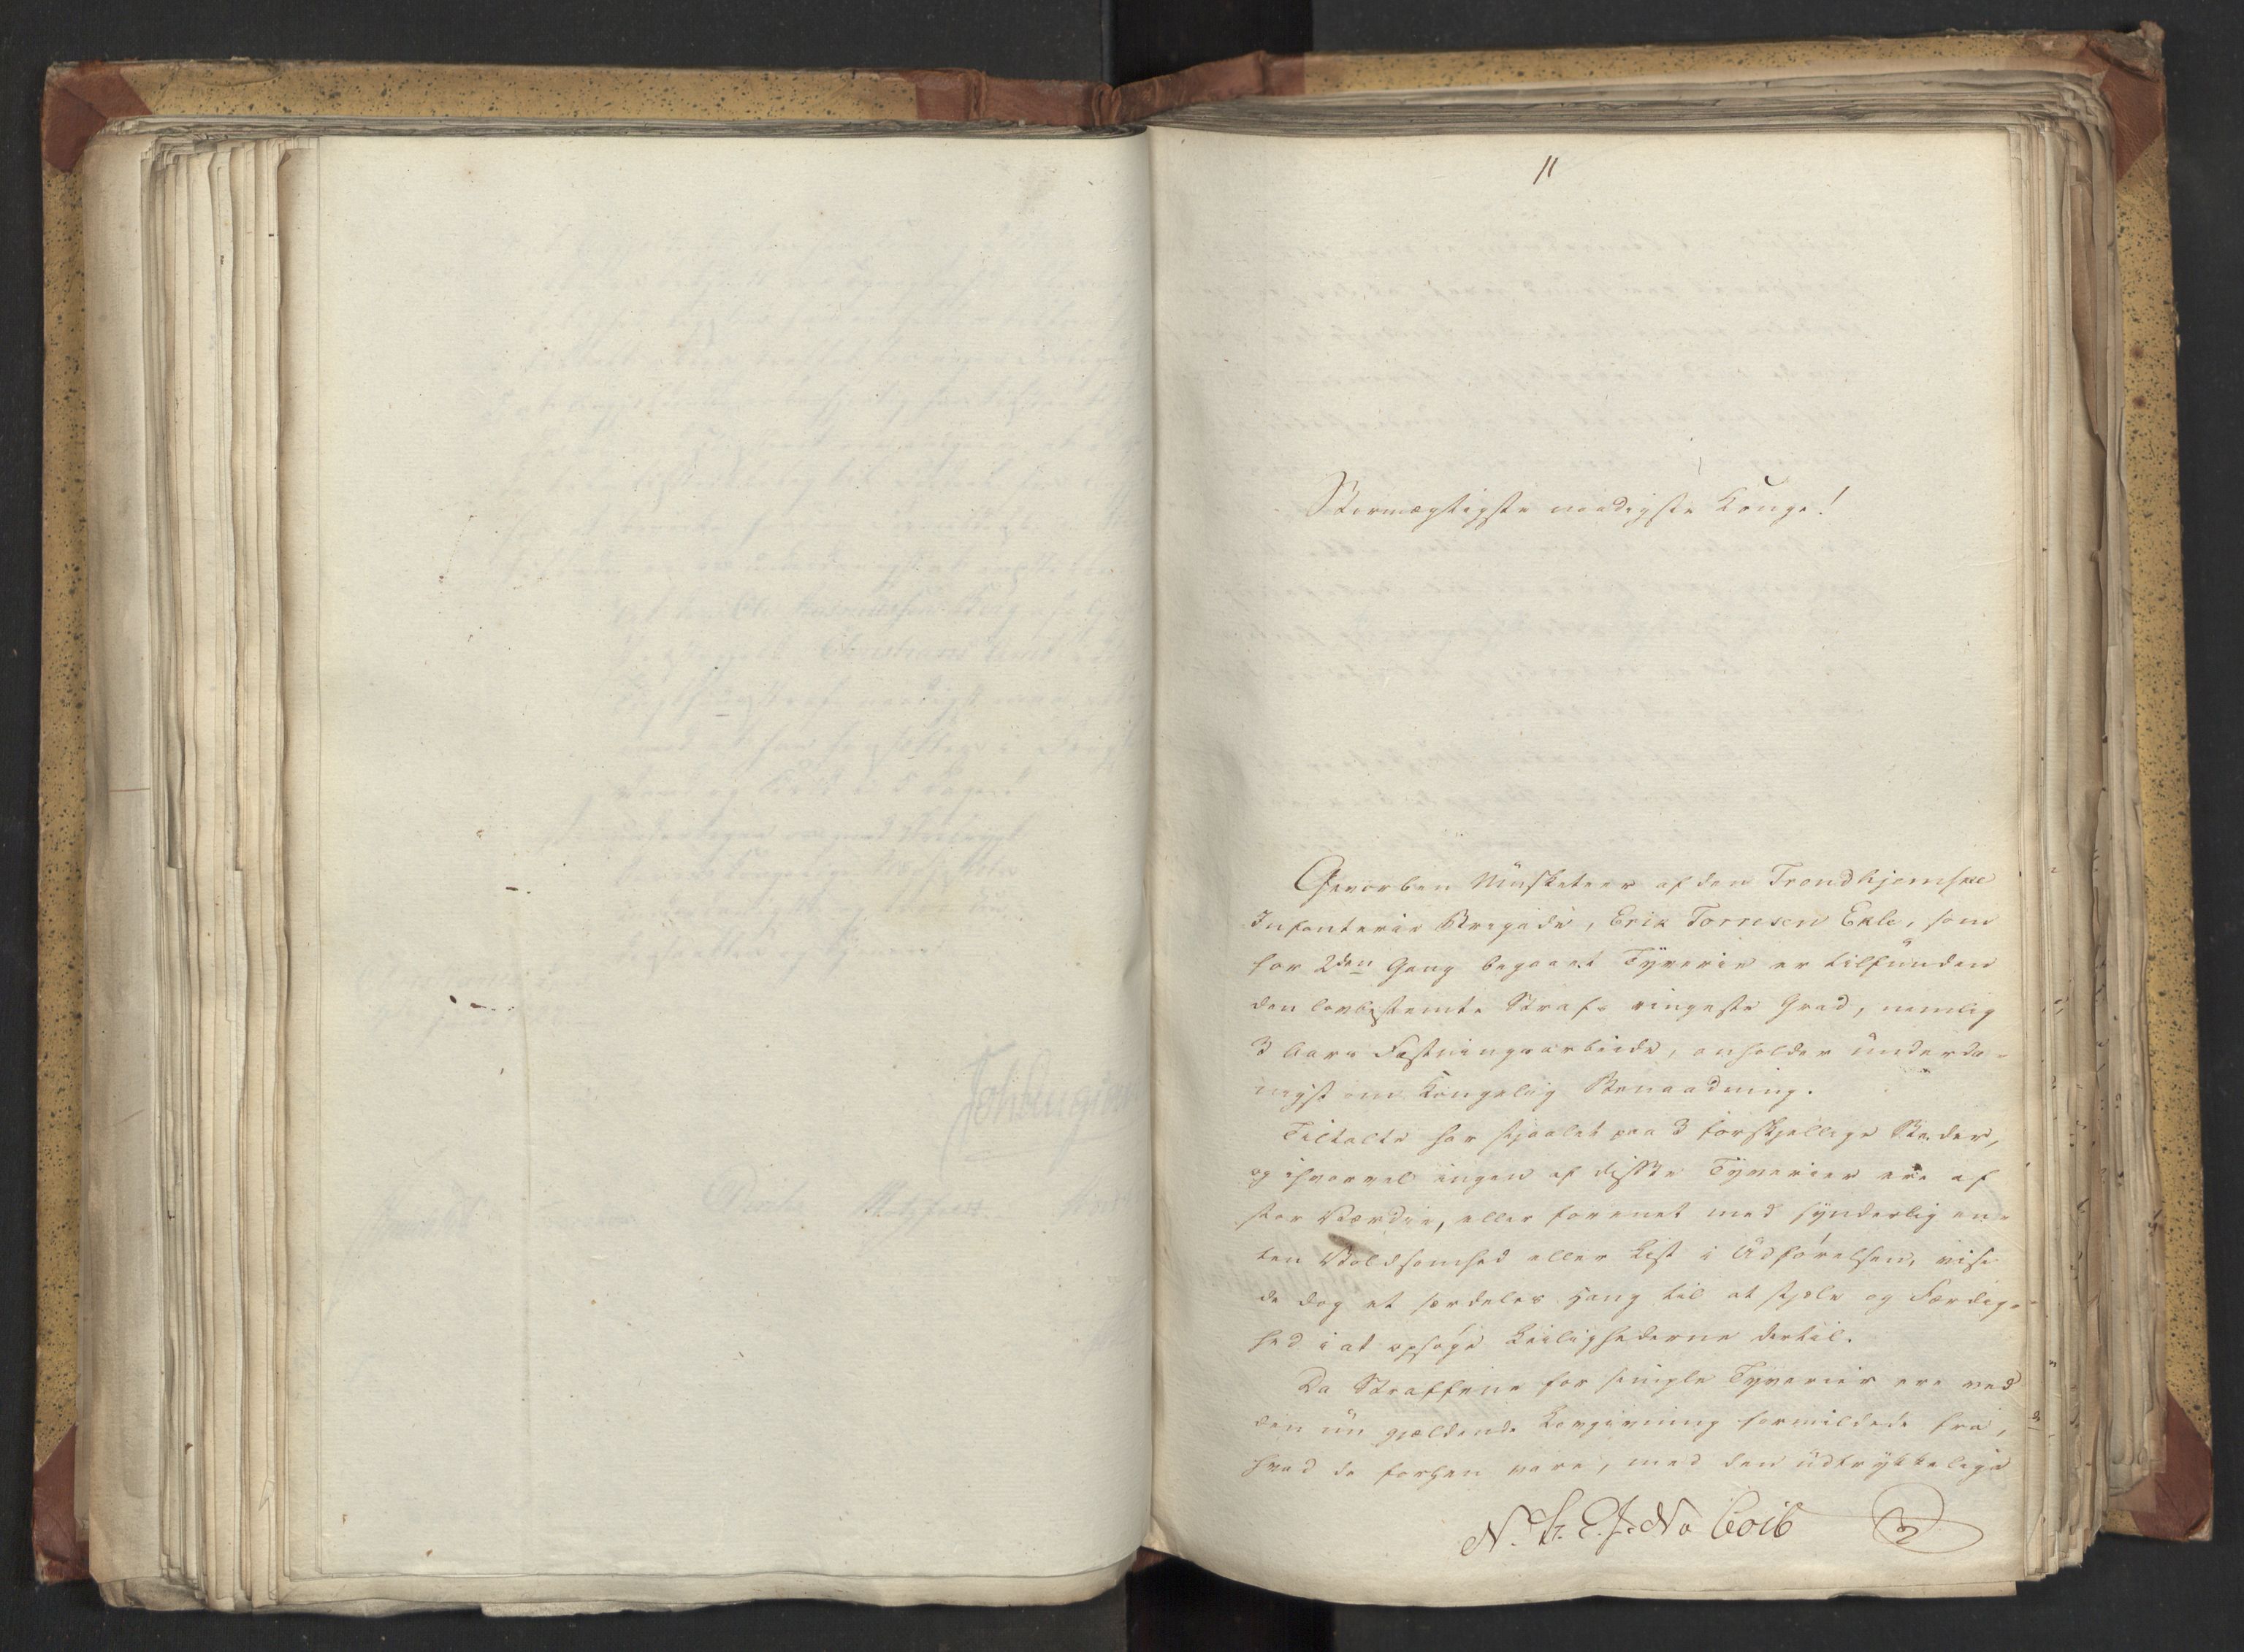 11
Stormægtigste naadigste Konge!
Gevorben Musketeer af den Trondhjemske
Infanterie Brigade, Erik Torresen Ekle, som
for 2den Gang begaaet Tyverie er tilfunden
den lovbestemte Strafs ringeste Grad, nemlig
3 Aars Fæstningsarbeide, anholder underda-
nigst om Kongelig Benaadning.
Tiltalte har stjaalet paa 3 forskjellige Stæder,
og ihvorvel ingen af disse Tyverier ere af
stor Værdie, eller forenet med synderlig en-
ten Voldsomhed eller List i Udførelsen, vise
de dog et særdeles Hang til at stjæle og Færdig-
hed i at opsøge Leilighederne dertil.
Da Straffene for simple Tyverier ere ved
den nu gjældende Lovgivning formildede fra,
hvad de forhen vare, med den udtrykkelige